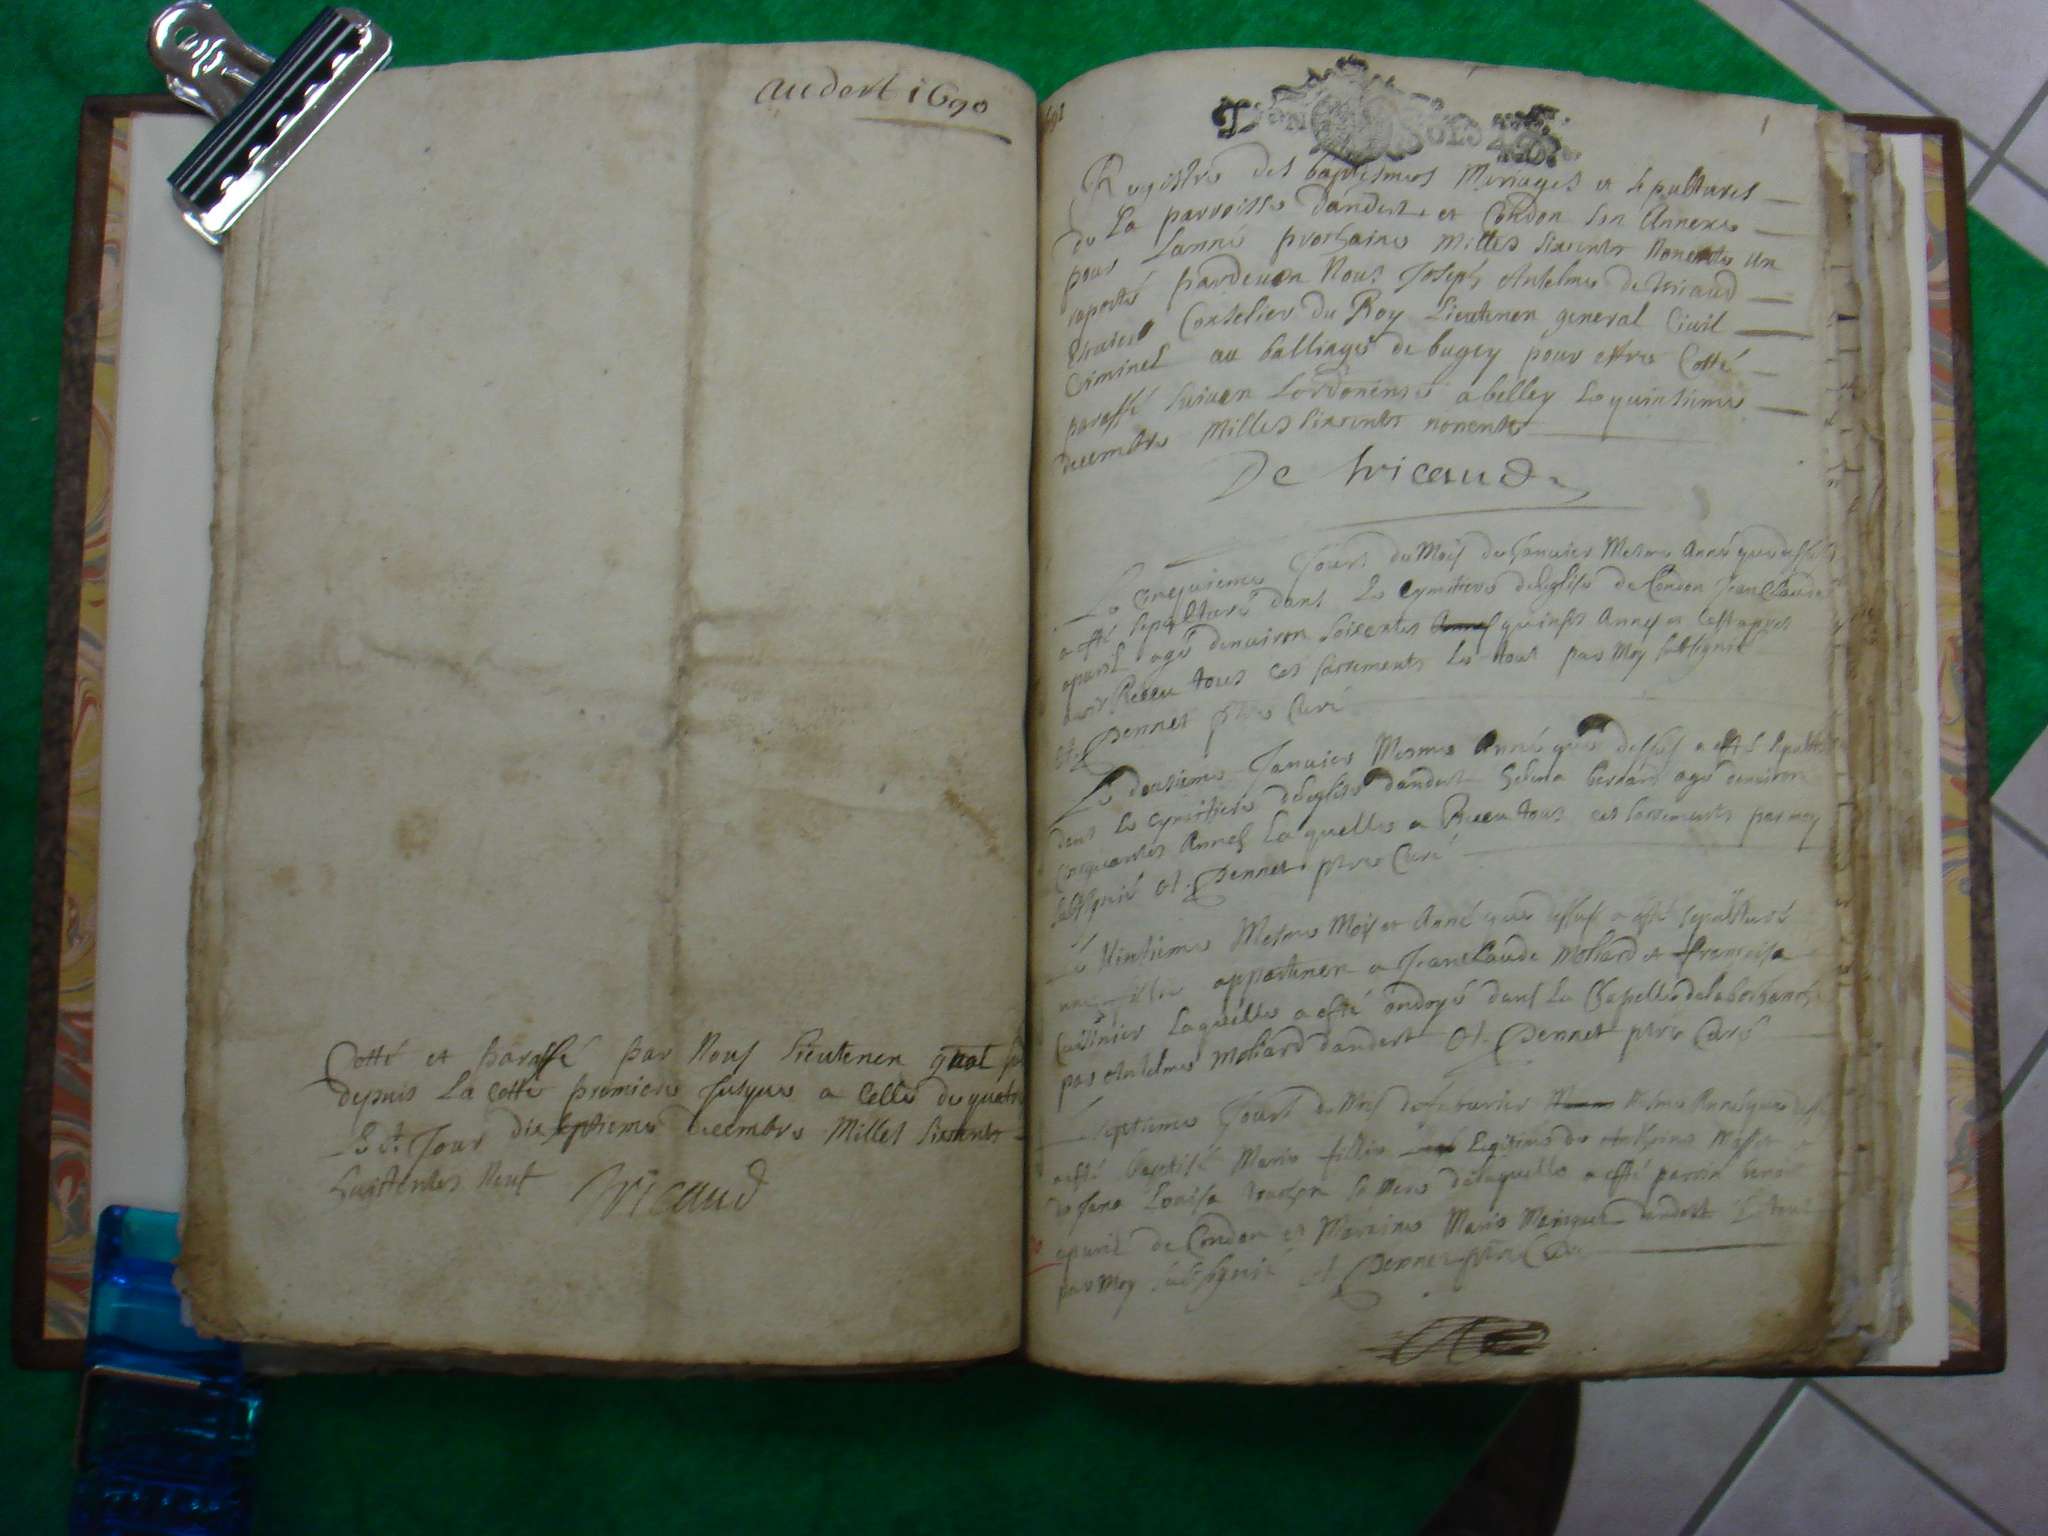 Audert 1690
Cotté et paraffé par Nous Lieutenen gñal
depuis La cotte premiere Jusques a Celle de quatre
Jour dix septieme decembre Milles sixcents
huictentes Neuf Tricaud
1691
1
Registre des baptesmes Mariages et sepultures
de La parroisse dandert et Condon son Annexe
pour Lanné prochaine Milles sixcents Nonente un
raporté pardeven Nous Joseph Anselme de Tricaud
Conselier du Roy Lieutenen general Civil
Criminel au balliage de bugey pour estre Cotté
paraffé suiven Lordonense a belley Le quinsieme
decembre Milles sixcents nonente
De Tricaud
Le Cinquieme Jour du Mois de Janvier Mesme Anné que dessus
a esté sepulturé dans Le Cymitiere de Leglise de Condon Jean Claude
agé denviron soixentes quinse Annes et Cest apres
avoir Receu tous ces sacrements Le tout par Moy soubsigné
Pennet ptre Curé
Le dousieme Janvier Mesme Anné que dessus a esté sepulturé
dans Le Cymittiere de Leglise dandert bernard agé denviron
Cinquantes Annes Laquelle a Receu tous ces sacrements par moy
soubsigné Pennet ptre Curé
Le Vintieme Mesme Mois et Anné que dessus a esté sepulturé
une fille appartenen a Jean Claude Moliard et francoise
Laquelle a esté ondoyé dans La Chapelle de
par Anselme Moliard dandert Pennet ptre Curé
Le septieme Jour de Mois de febvrier Mesme Anné que dessus
a esté baptisé Marie fillie Legitime de
de Louise sa Mere de laquelle a esté parrin benoit
de Condon et Marrine Marie dandert Le tout
par Moy soubsigné Pennet ptre Curé